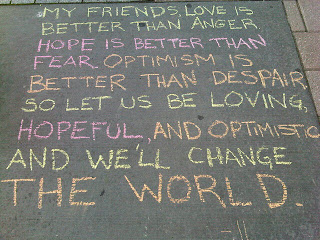 MY FRIENDS, LOVE IS
BETTER THAN ANGER.
HOPE IS BETTER THAN
FEAR. OPTIMISM IS
BETTER THAN DESPAIR
SO LET US BE LOVING,
HOPEFUL, AND OPTIMISTIC
AND WE'LL CHANGE
THE WORLD.